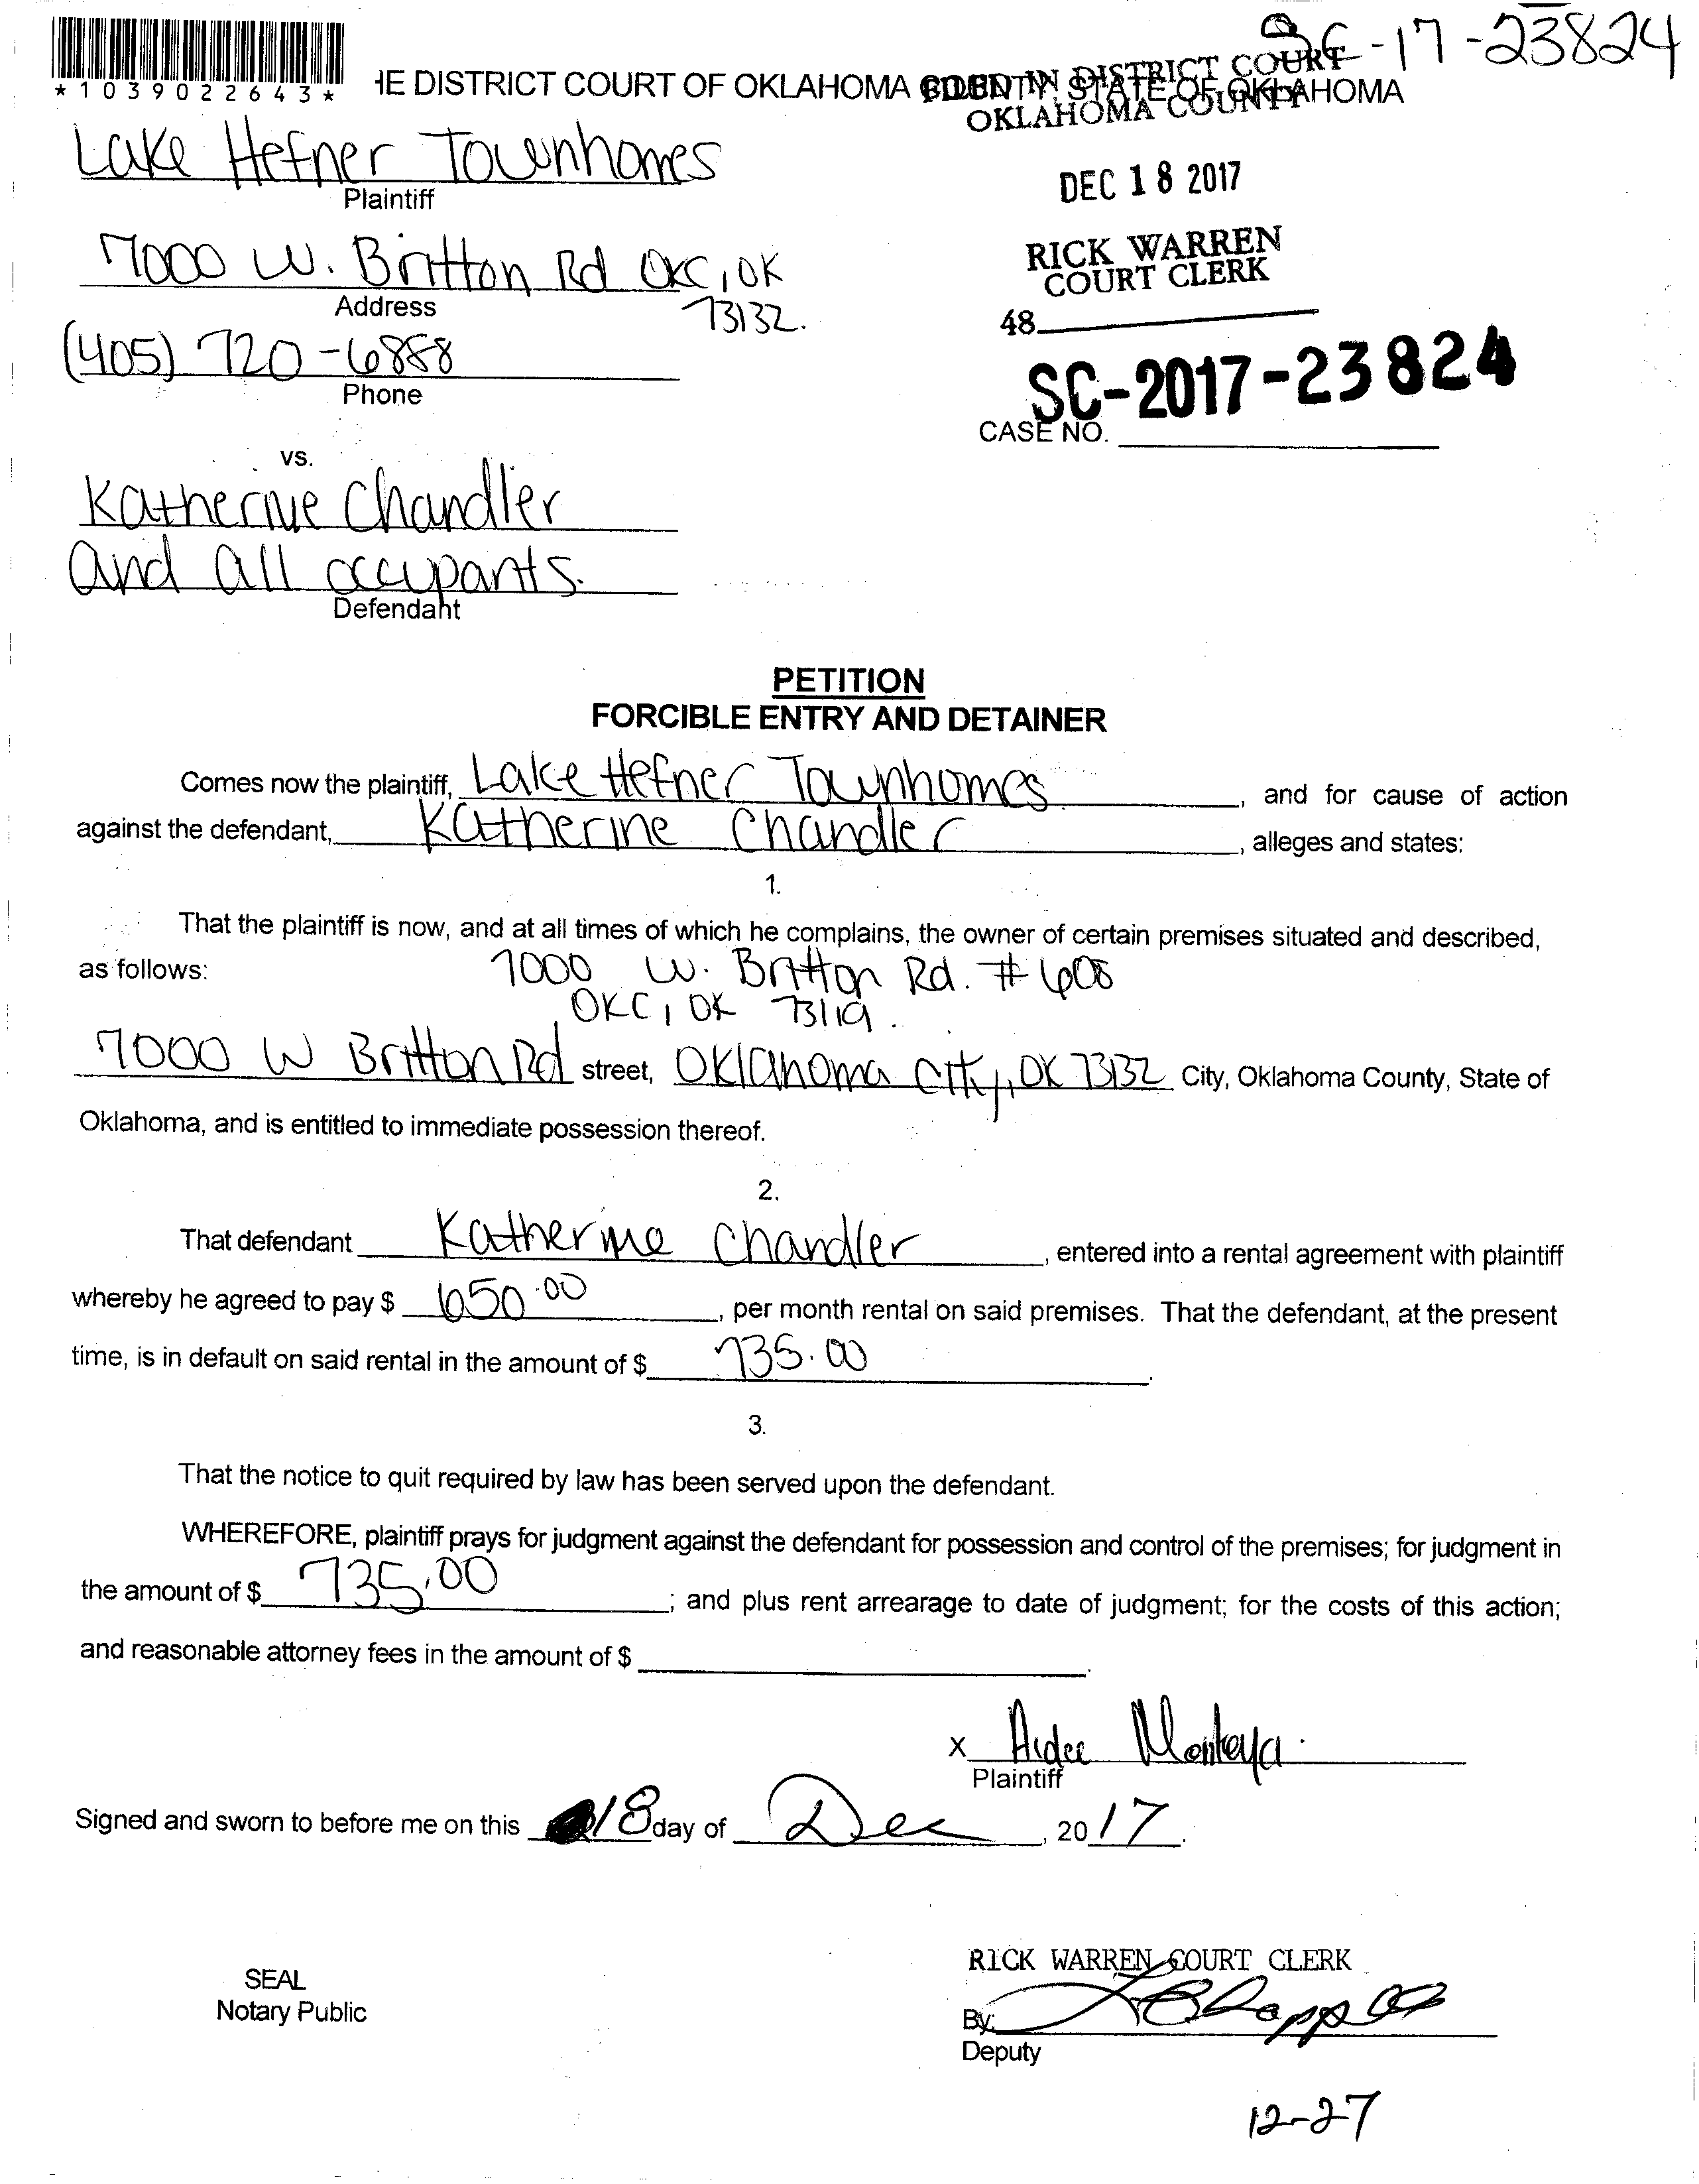 SC-17-23824
*1039022643*
IE DISTRICT COURT OF OKLAHOMA COUNTY, STATE OF OKLAHOMA
FILED IN DISTRICT COURT
OKLAHOMA COUNTY
Lake Hefner Townhomes
Plaintiff
DEC 18 2017
7000 W. Britton Rd OKC, OK
73132.
Address
RICK WARREN
COURT CLERK
48
(405) 720-6888
Phone
SC-2017-23824
CASE NO.
vs.
Katherine Chandler
and all occupants.
Defendant
PETITION
FORCIBLE ENTRY AND DETAINER
Comes now the plaintiff, Lake Hefner Townhomes, and for cause of action
against the defendant, Katherine Chandler, alleges and states:
1.
That the plaintiff is now, and at all times of which he complains, the owner of certain premises situated and described,
as follows: 7000 W. Britton Rd. #608
OKC, OK 73119.
7000 W Britton Rd street, Oklahoma City, OK 73132 City, Oklahoma County, State of
Oklahoma, and is entitled to immediate possession thereof.
2.
That defendant Katherine Chandler, entered into a rental agreement with plaintiff
whereby he agreed to pay $ 650.00, per month rental on said premises. That the defendant, at the present
time, is in default on said rental in the amount of $ 735.00.
3.
That the notice to quit required by law has been served upon the defendant.
WHEREFORE, plaintiff prays for judgment against the defendant for possession and control of the premises; for judgment in
the amount of $ 735.00; and plus rent arrearage to date of judgment; for the costs of this action;
and reasonable attorney fees in the amount of $
x Aidee Montoya
Plaintiff
Signed and sworn to before me on this 18 day of Dec, 2017.
SEAL
Notary Public
RICK WARREN COURT CLERK
By:
Deputy
12-27